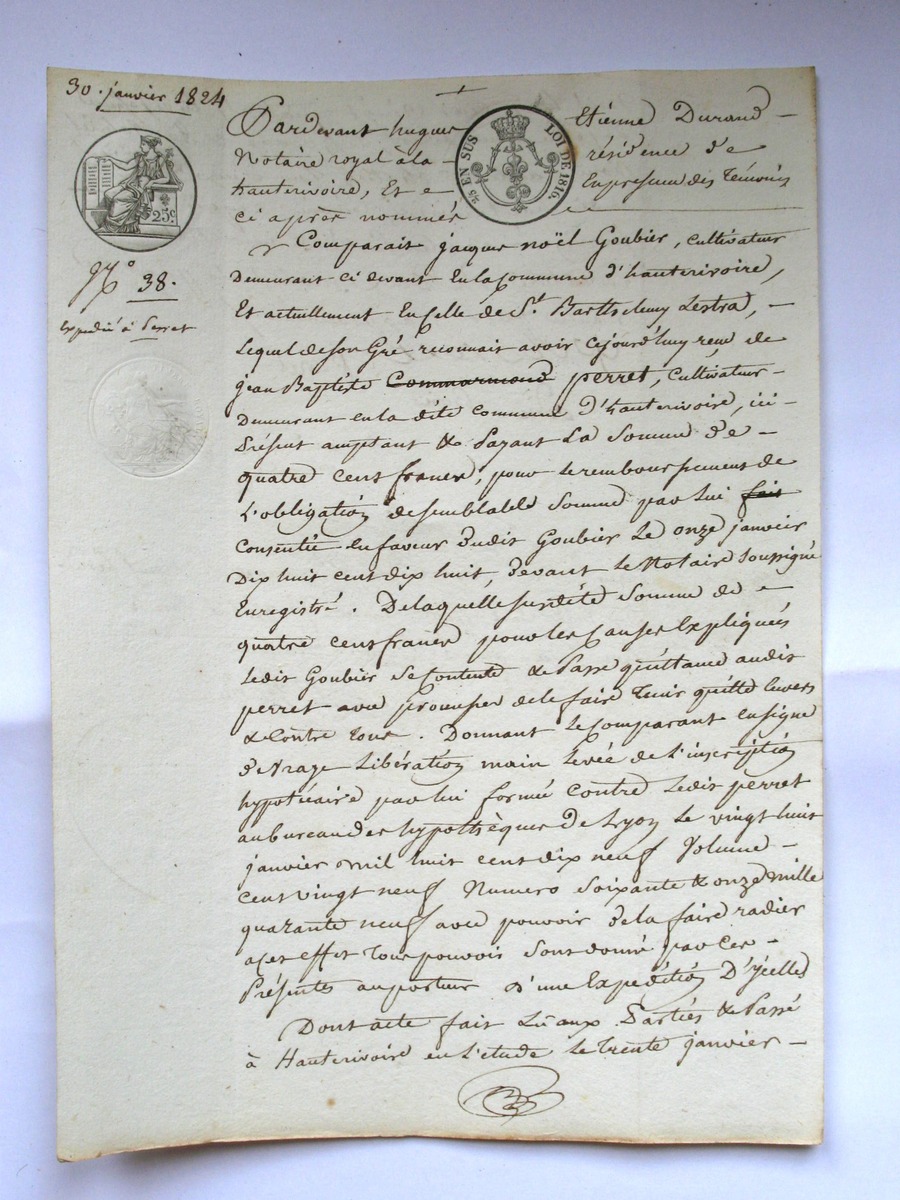 30. janvier 1824
Pardevant hugues Etienne Durand
Notaire royal à la résidence de
hauterivoire, Et en presence des temoins
ci après nommés
25 EN SUS LOI DE 1816.
25c.
No 38.
Expedié à Perret
Comparait jacques noël Goubier, cultivateur
Demeurant ci devant En la Commune d'hauterivoire,
Et actuellement En Celle de St. Barthelemy Lestra,
Lequel de son Gré reconnait avoir cejourd'huy reçu de
jean Baptiste Commarmond perret, Cultivateur
Demeurant en la dite commune d'hauterivoire, ici
Présent acceptant & Payant La Somme de
quatre cent francs, pour le remboursement de
L'obligation de semblable Somme par lui fait
Consentie en faveur dudit Goubier Le onze janveir
Dix huit cent dix huit, devant le Notaire Soussigné
Enregistré. De laquelle susdite Somme de
quatre cent francs pour les Causes Expliquées
Ledit Goubier se Contente & Passe quittance audit
perret avec promesse de le faire tenir quitte Envers
& Contre tous. Donnant le Comparant en signe
de vraye Libération main Levée de l'inscription
hypotécaire par lui formée contre Ledit perret
au bureau des hypothèques de Lyon Le vingt huit
janvier mil huit cent dix neuf Volume
Cent vingt neuf Numero Soixante & onze mille
quarante neuf avec pouvoir de la faire radier
a cet effet tous pouvoirs sont donné par Ces
Présentes au porteur d'une Expédition D'ycelles
Dont acte fait Lu aux Parties & Passé
à Hauterivoire en l'étude le trente janvier